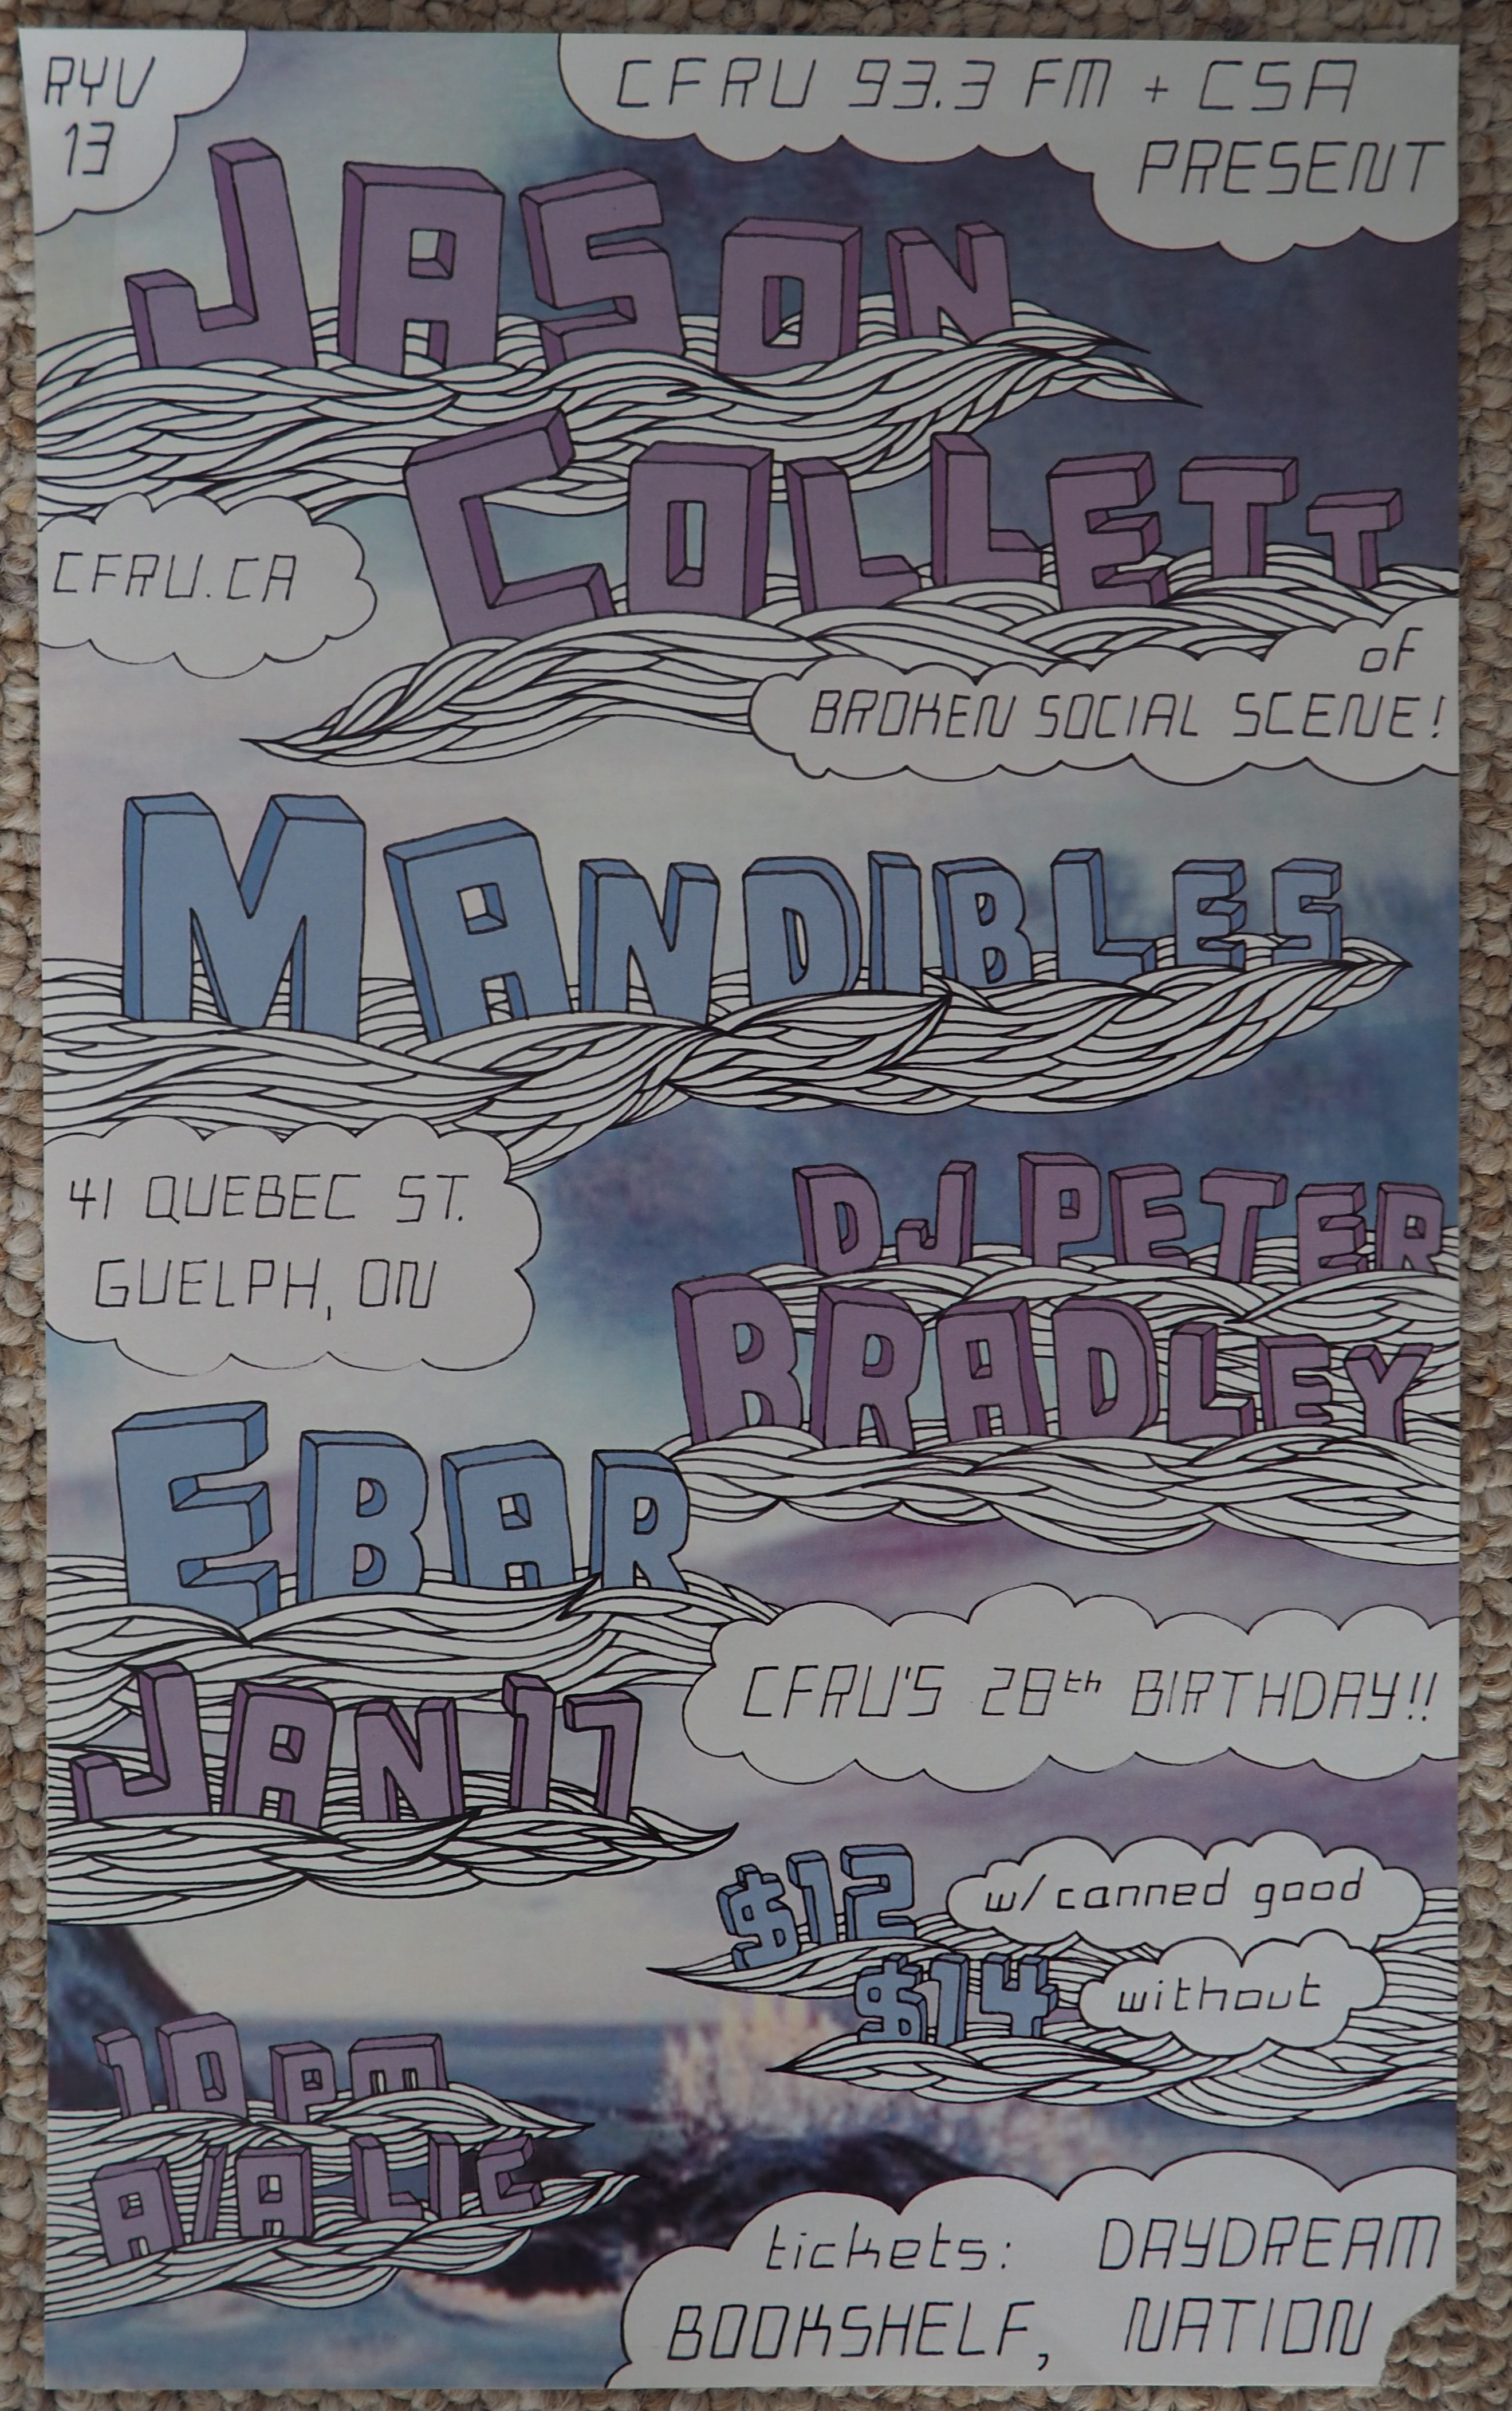 RYU
13
CFRU 93.3 FM + CSA
PRESENT
JASON
COLLETT
CFRU.CA
of
BROKEN SOCIAL SCENE!
MANDIBLES
41 QUEBEC ST.
GUELPH, ON
DJ PETER
BRADLEY
EBAR
CFRU'S 28th BIRTHDAY!!
JAN 17
$12 w/ canned good
$14 without
10 PM
A/A LIC
tickets: DAYDREAM
BOOKSHELF, NATION